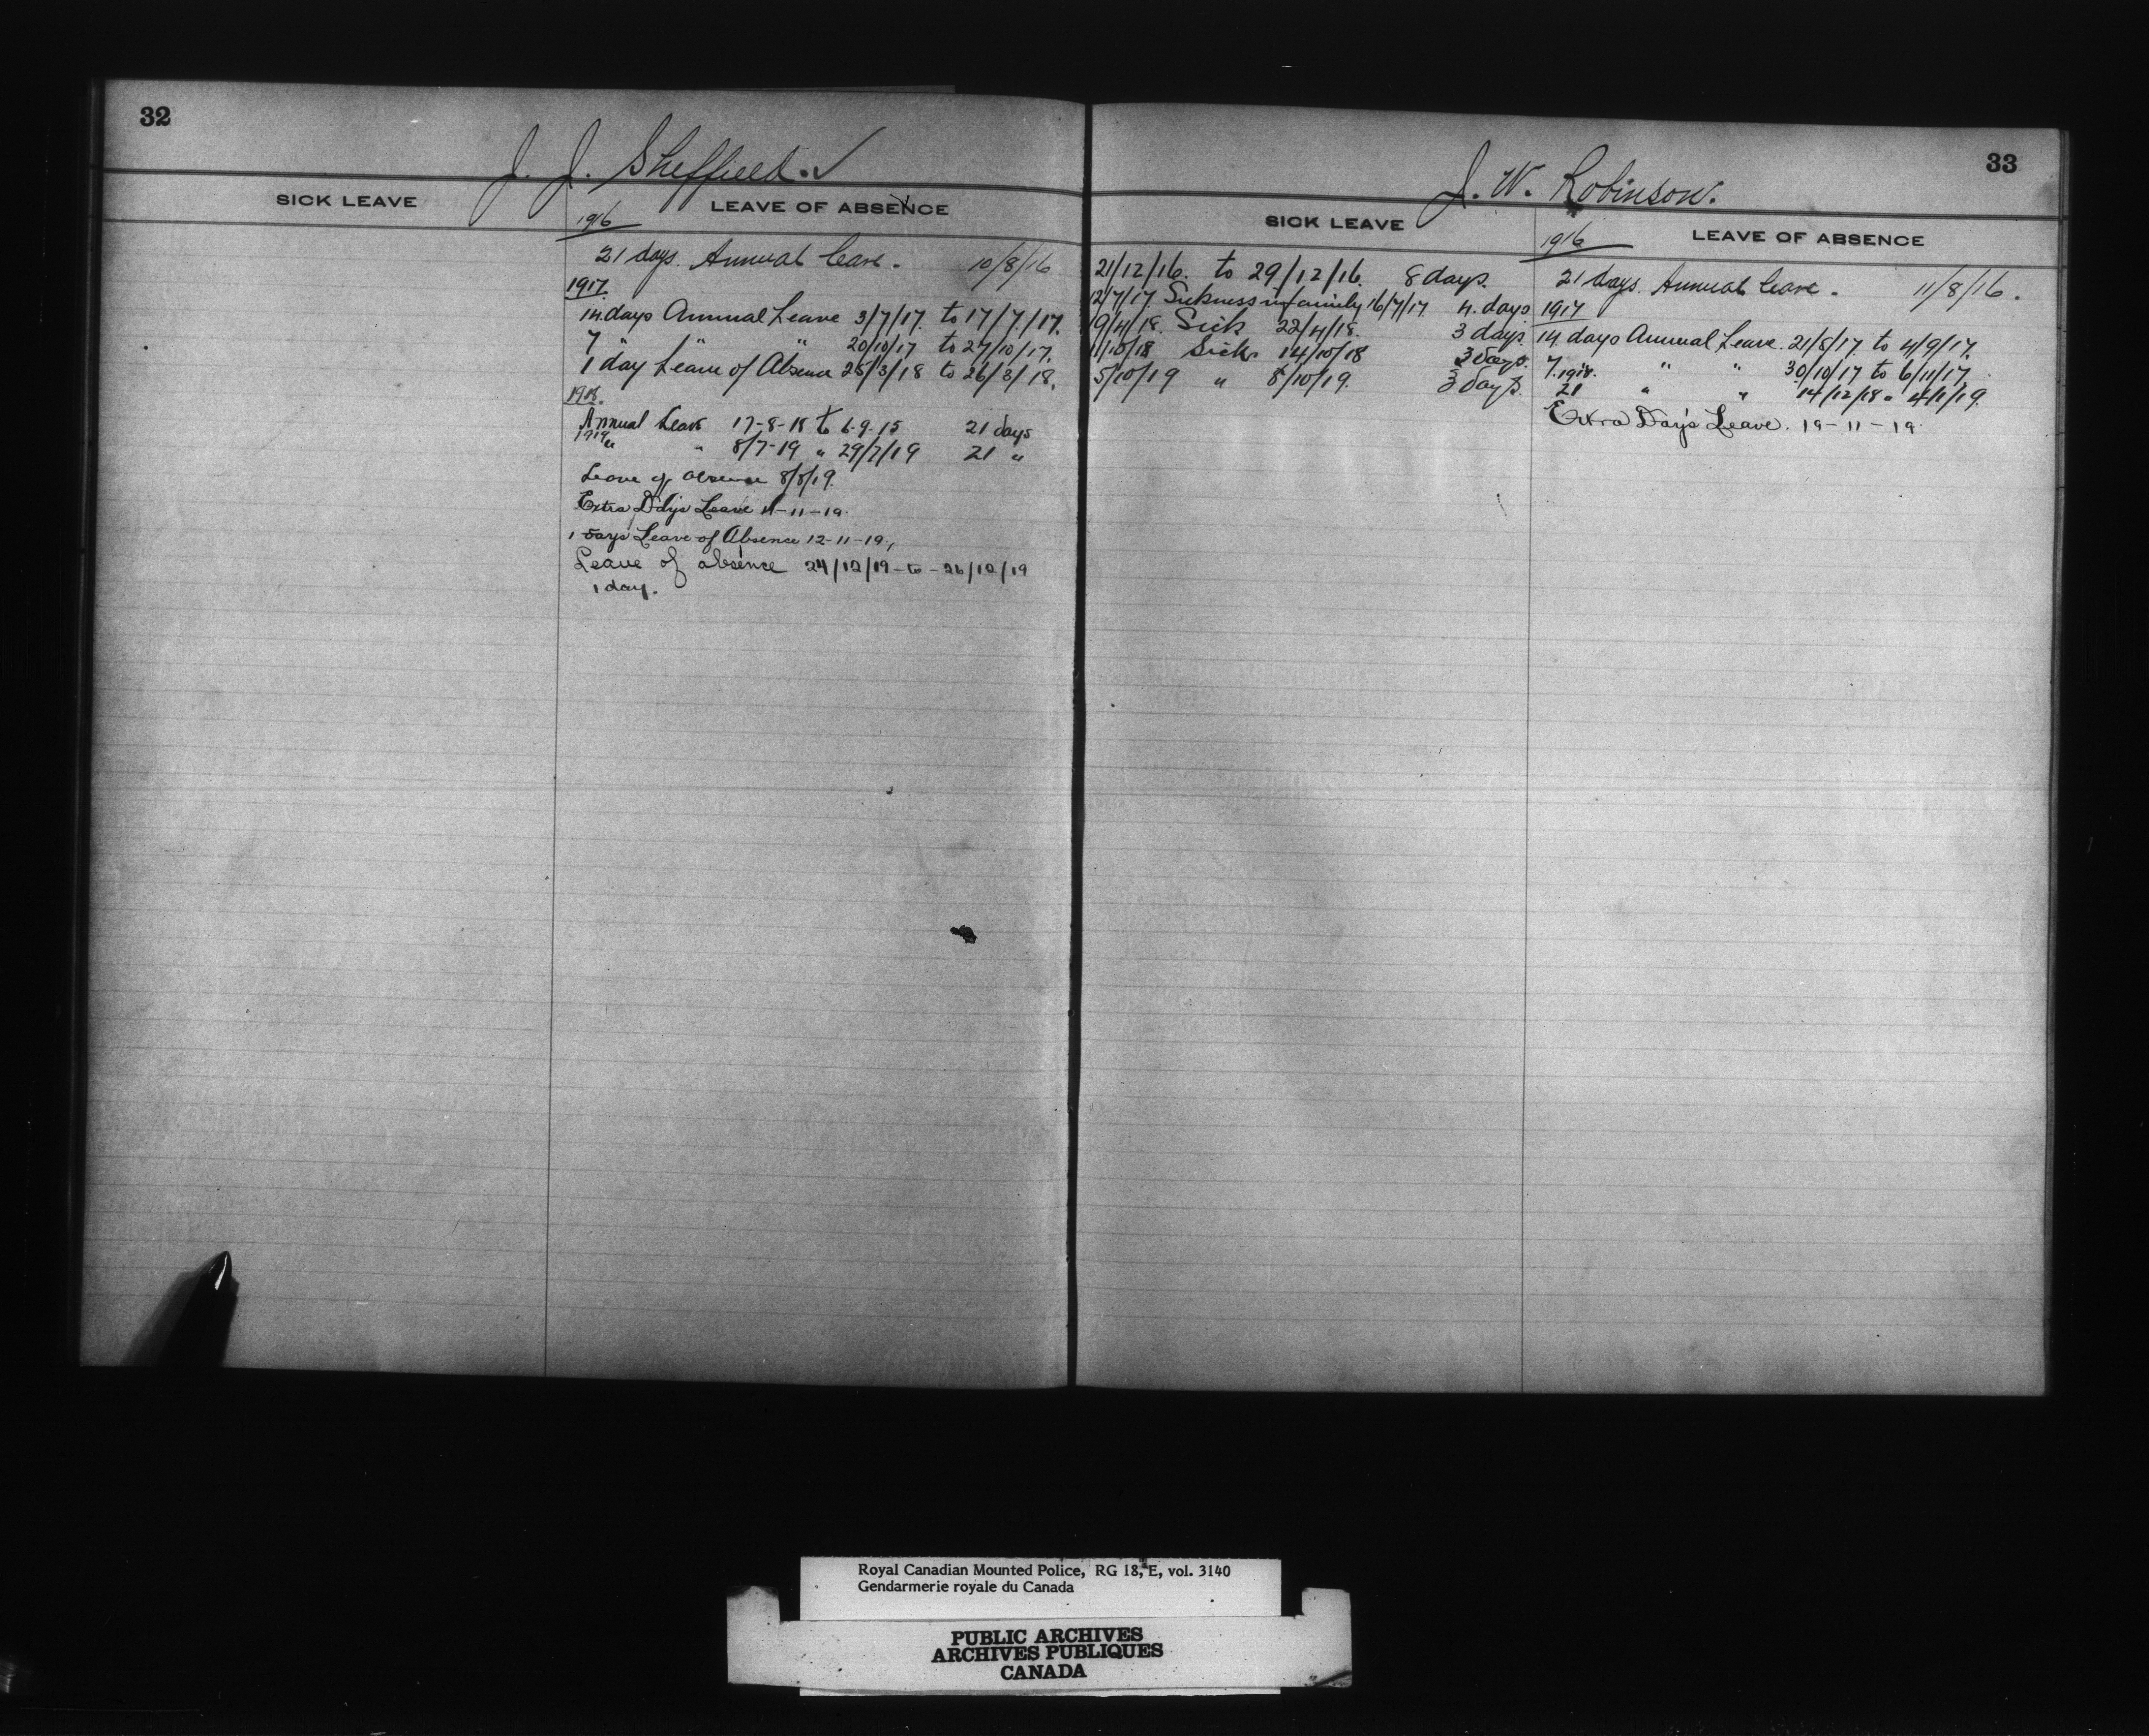 32
J. J. Sheffield. ✓
SICK LEAVE
LEAVE OF ABSENCE
1916
21 days. Annual leave. 10/8/16
1917
14 days Annual Leave 3/7/17. to 17/7/17.
7 " " " 20/10/17 to 27/10/17.
1 day Leave of Absence 25/3/18 to 26/3/18.
1918.
Annual Leave 17-8-18 to 6-9-18 21 days
1919 " " 8/7-19 " 29/7/19 21 "
Leave of absence 8/8/19.
Extra Day's Leave 11-11-19.
1 Days Leave of Absence 12-11-19.
Leave of absence 24/12/19 - to - 26/12/19
1 day.
33
J. W. Robinson.
SICK LEAVE
21/12/16. to 29/12/16. 8 days.
12/7/17 Sickness in family 16/7/17 4. days
19/4/18. Sick 22/4/18. 3 days.
11/10/18 Sick 14/10/18 3 days.
5/10/19 " 8/10/19. 3 days.
LEAVE OF ABSENCE
1916
21 days. Annual leave. 11/8/16.
1917
14 days Annual Leave. 21/8/17 to 4/9/17.
7. " " 30/10/17 to 6/11/17.
1918.
21 " " 14/12/18 " 4/1/19.
Extra Day's Leave. 19-11-19.
Royal Canadian Mounted Police, RG 18, E, vol. 3140
Gendarmerie royale du Canada
PUBLIC ARCHIVES
ARCHIVES PUBLIQUES
CANADA